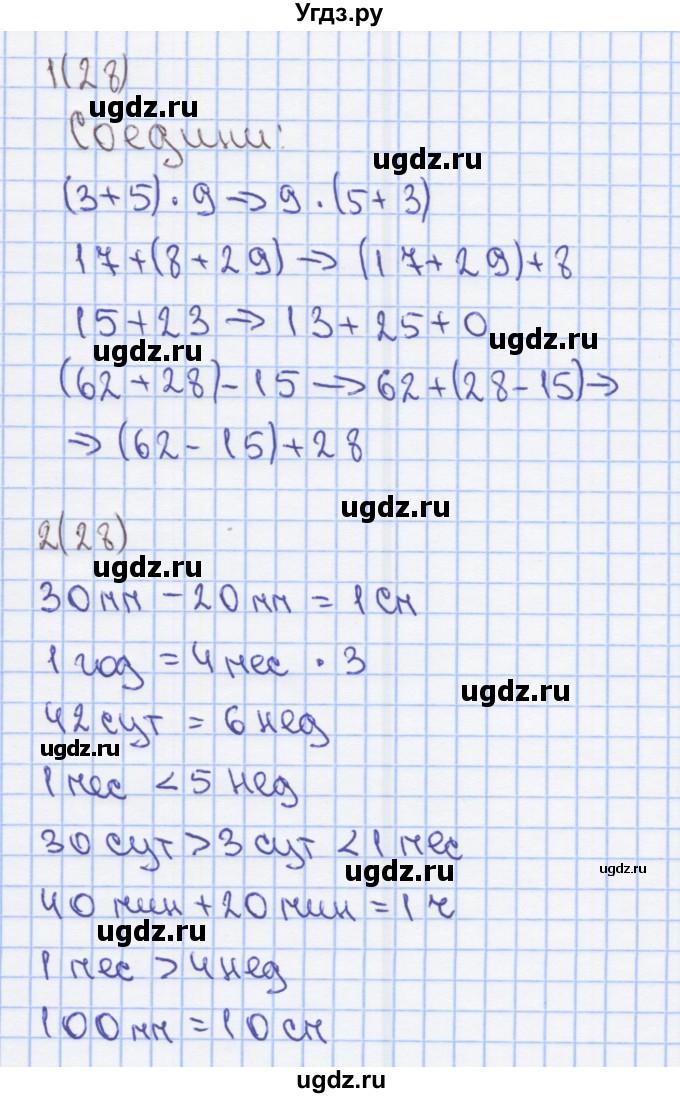 Угдз.ру
1(28)
ugdz.ru
Соедини:
ugdz.ru
(3+5)·9→9·(5+3)
17+(8+29)→(17+29)+8
15+23→13+25+0
ugdz.ru
ugdz.ru
(62+28)-15→62+(28-15)→
→(62-15)+28
ugdz.ru
2(28)
ugdz.ru
30мм-20мм=1см
1 год=4мес·3
ugdz.ru
42сут=6нед
ugdz.ru
1мес<5нед
30сут>3сут<1мес
ugdz.ru
ugdz.ru
40мин+20мин=1ч
ugdz.ru
1мес>4нед
100мм=10см
ugdz.ru